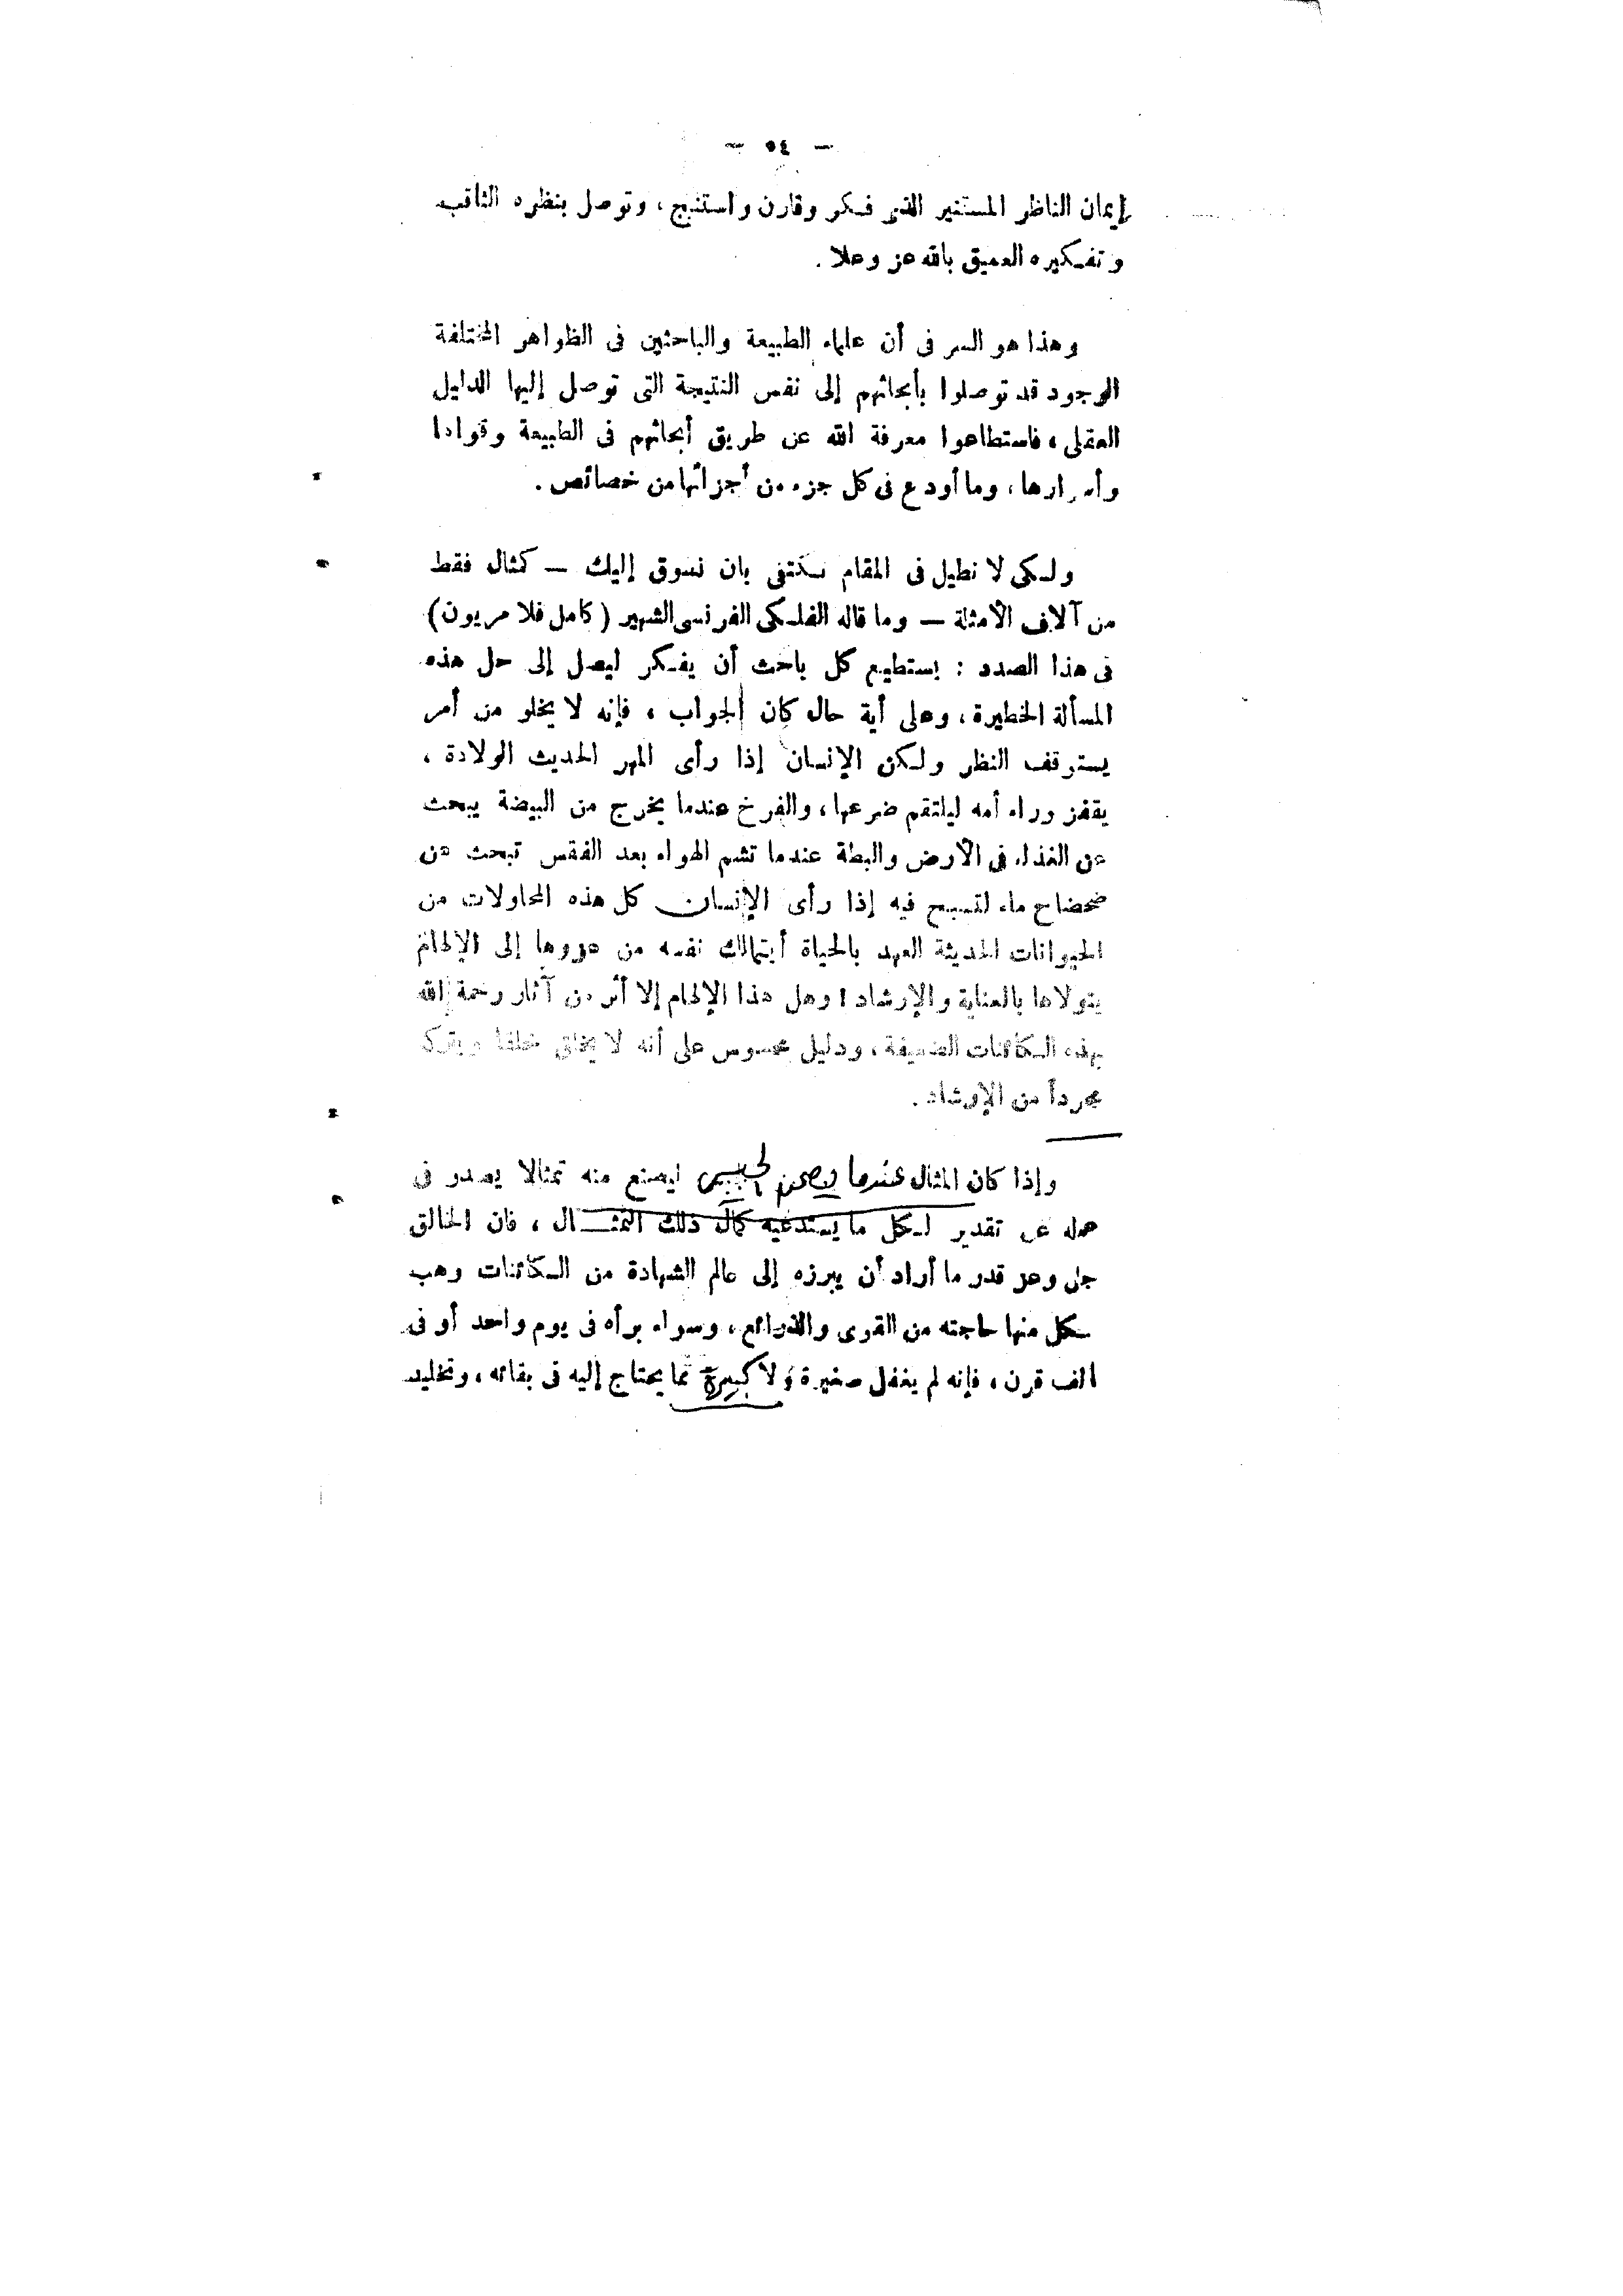 — ٥٤ —
إيمان الناظر المستنير الذى فكر وقارن واستنتج ، وتوصل بنظره الثاقب
وتفكيره العميق بالله عز وعلا .
وهذا هو السر فى أن علماء الطبيعة والباحثين فى الظواهر المختلفة
الوجود قد توصلوا بأبحاثهم إلى نفس النتيجة التى توصل إليها الدليل
العقلى ، فاستطاعوا معرفة الله عن طريق أبحاثهم فى الطبيعة وقواها
وأسرارها ، وما أودع فى كل جزء من أجزائها من خصائص .
ولكى لا نطيل فى المقام نكتفى بان نسوق إليك — كمثال فقط
من آلاف الأمثلة — وما قاله الفلكى الفرنسى الشهير ( كامل فلامريون )
فى هذا الصدد : يستطيع كل باحث أن يفكر ليصل إلى حل هذه
المسألة الخطيرة ، وعلى أية حال كان الجواب ، فإنه لا يخلو من أمر
يستوقف النظر ولكن الإنسان إذا رأى المهر الحديث الولادة ،
يقفز وراء أمه ليلتقم ضرعها ، والفرخ عندما يخرج من البيضة يبحث
عن الغذاء فى الأرض والبطة عندما تشم الهواء بعد الفقس تبحث عن
ضحضاح ماء لتسبح فيه إذا رأى الإنسان كل هذه المحاولات من
الحيوانات الحديثة العهد بالحياة أيتمالك نفسه من عزوها إلى الإلهام
يتولاها بالعناية والإرشاد ! وهل هذا الإلهام إلا أثر من آثار رحمة الله
بهذه الكائنات الضعيفة ، ودليل محسوس على أنه لا يخلق خلقا ويتركه
مجرداً من الإرشاد .
وإذا كان المثال عندما يصحن الجبس ليصنع منه تمثالا يصدر فى
عمله عن تقدير لكل ما يستدعيه كمال ذلك التمثال ، فان الخالق
جل وعز قدر ما أراد أن يبرزه إلى عالم الشهادة من الكائنات وهب
لكل منها حاجته من القوى والذرائع ، وسواء برأه فى يوم واحد أو فى
الف قرن ، فإنه لم يغفل صغيرة ولا كبيرة مما يحتاج إليه فى بقائه ، وتخليد